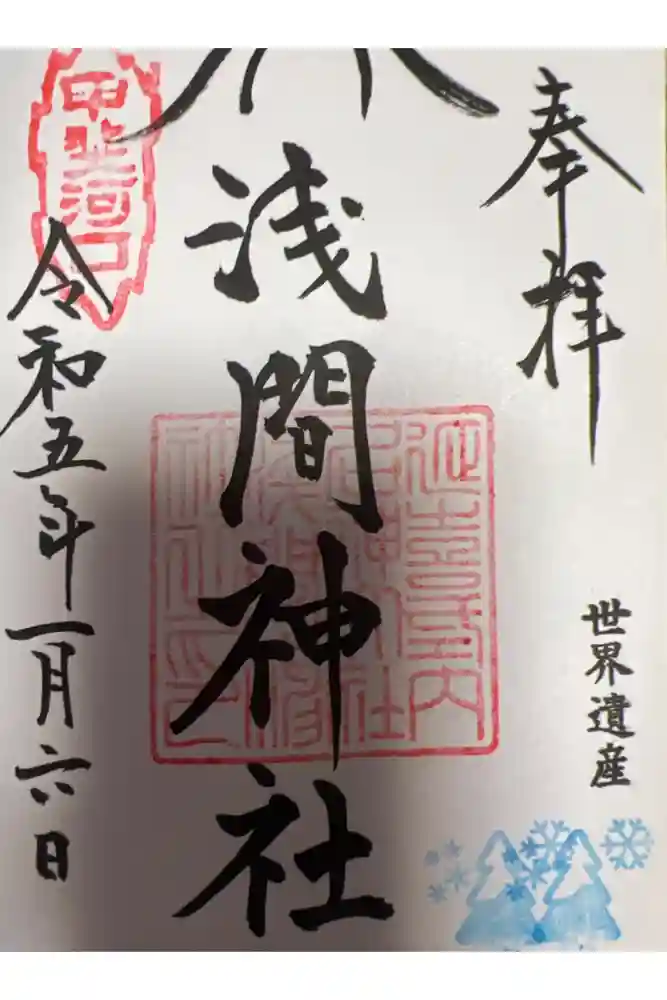 奉拝
世界遺産
浅間神社
甲斐河口
令和五年一月六日